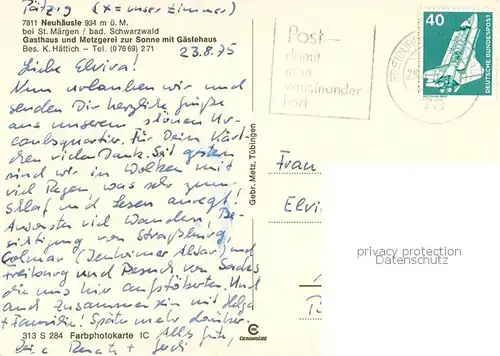 Pätzig (x = unser Zimmer)
7811 Neuhäusle 934 m ü. M.
bei St. Märgen / bad. Schwarzwald
Gasthaus und Metzgerei zur Sonne mit Gästehaus
Bes. K. Hättich – Tel. (07669) 271
23.8.75
Liebe Elvira!
Nun urlauben wir und
senden Dir herzliche Grüße
aus unserem schönen Ur-
laubsquartier. Für Dein Kärt-
chen vielen Dank. Seit gestern
sind wir in Wolken mit
viel Regen, was sehr zum
Schlaf und Lesen anregt!
Ansonsten viel Wandern, Be-
sichtigung von Straßburg,
Colmar (Isenheimer Altar) und
Freiburg und Besuch von
die uns hier aufstöberten. Und
auch Zusammensein mit Helga
+ Familie! Später mehr darüber.
Alles Gute,
Deine
313 S 284 Farbphotokarte IC
Gebr. Metz, Tübingen
Post-
damit
man
voneinander
hört
FREIBURG
40
DEUTSCHE BUNDESPOST
Frau
Elvi
privacy protection
Datenschutz